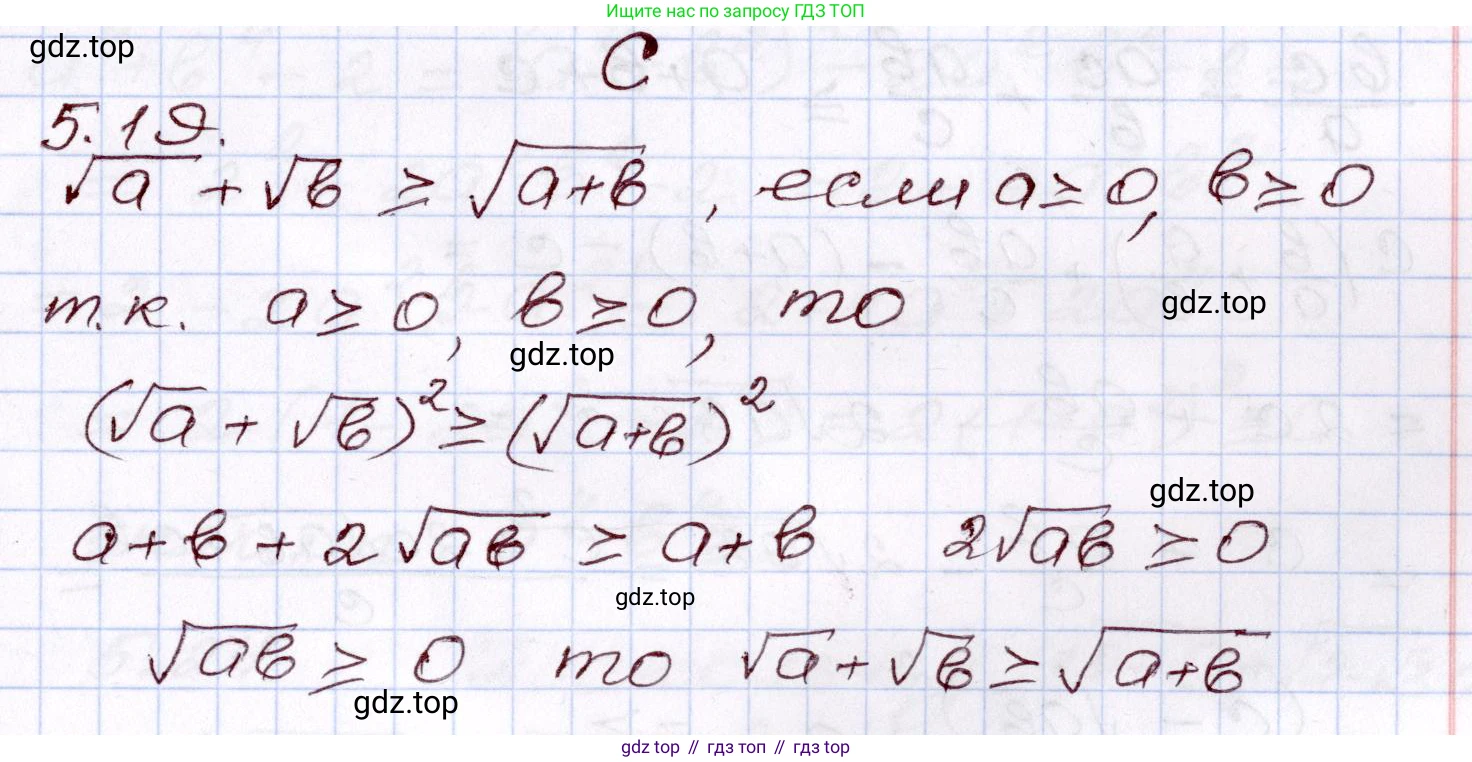 Ищите нас по запросу ГДЗ ТОП
gdz.top
С
5.19.
√a + √b ≥ √(a+b), если a ≥ 0, b ≥ 0
т.к. a ≥ 0, b ≥ 0, то
gdz.top
gdz.top
(√a + √b)² ≥ (√(a+b))²
gdz.top
a + b + 2√(ab) ≥ a + b 2√(ab) ≥ 0
gdz.top
√(ab) ≥ 0 то √a + √b ≥ √(a+b)
gdz.top
gdz top // гдз топ // gdz top